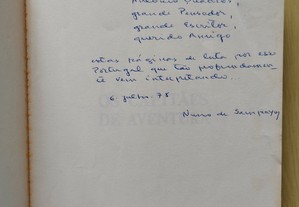 António Quadros,
grande Pensador,
grande Escritor,
querido Amigo
estas páginas de luta por esse
Portugal que tão profundamen-
te vem interpretando.
6 julho. 78
Nuno de Sampayo
DE AVENTURA